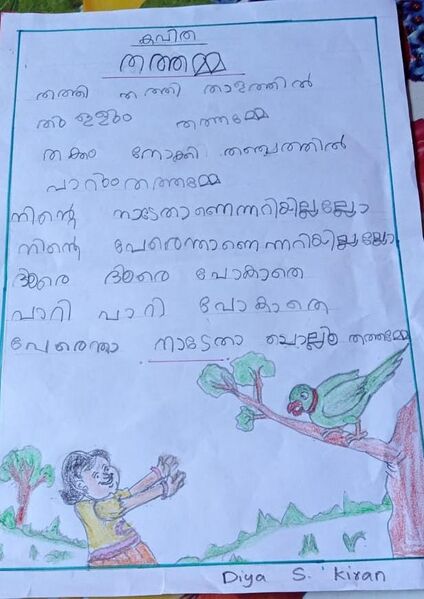 കവിത
തത്തമ്മ
തത്തി തത്തി താളത്തിൽ
തത്തമ്മേ
തക്കം നോക്കി തഞ്ചത്തിൽ
പാറും തത്തമ്മേ
നിന്റെ നാടേതാണെന്നറിയില്ലല്ലോ
നിന്റെ പേരെന്താണെന്നറിയില്ലല്ലോ
ദൂരെ ദൂരെ പോകാതെ
പാറി പാറി പോകാതെ
പേരെന്താ നാടേതാ ചൊല്ലൂ തത്തമ്മേ
Diya S. Kiran